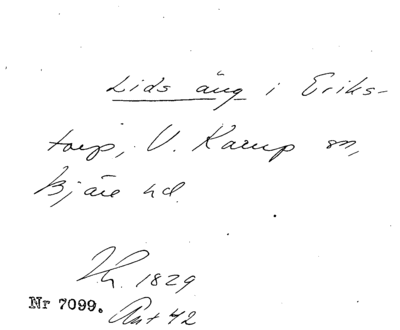 Lids äng i Eriks-
torp, V. Karup sn,
Bjäre hd.
Jh. 1829
Nr 7099. Ant 42